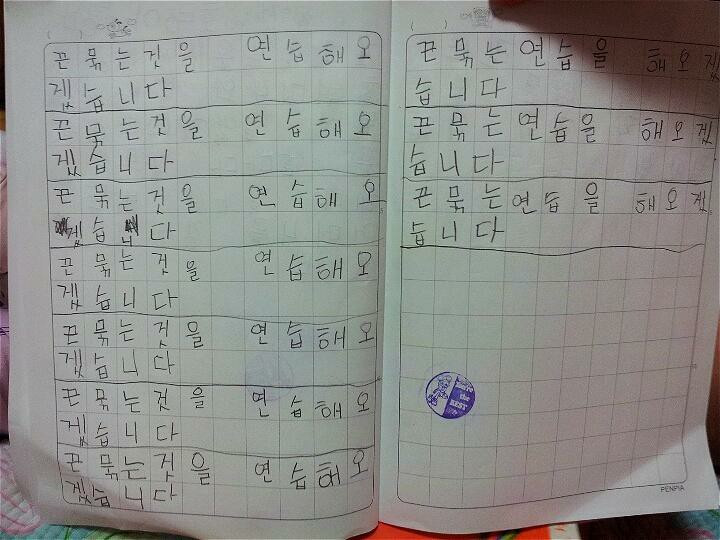 끈 묶는것을 연습해오
겠습니다
끈 묶는것을 연습해오
겠습니다
끈 묶는것을 연습해오
겠습니다
끈 묶는것을 연습해오
겠습니다
끈 묶는것을 연습해오
겠습니다
끈 묶는것을 연습해오
겠습니다
끈 묶는것을 연습해오
겠습니다
끈 묶는연습을 해오겠
습니다
끈 묶는연습을 해오겠
습니다
끈 묶는연습을 해오겠
습니다
the
BEST
PENPIA